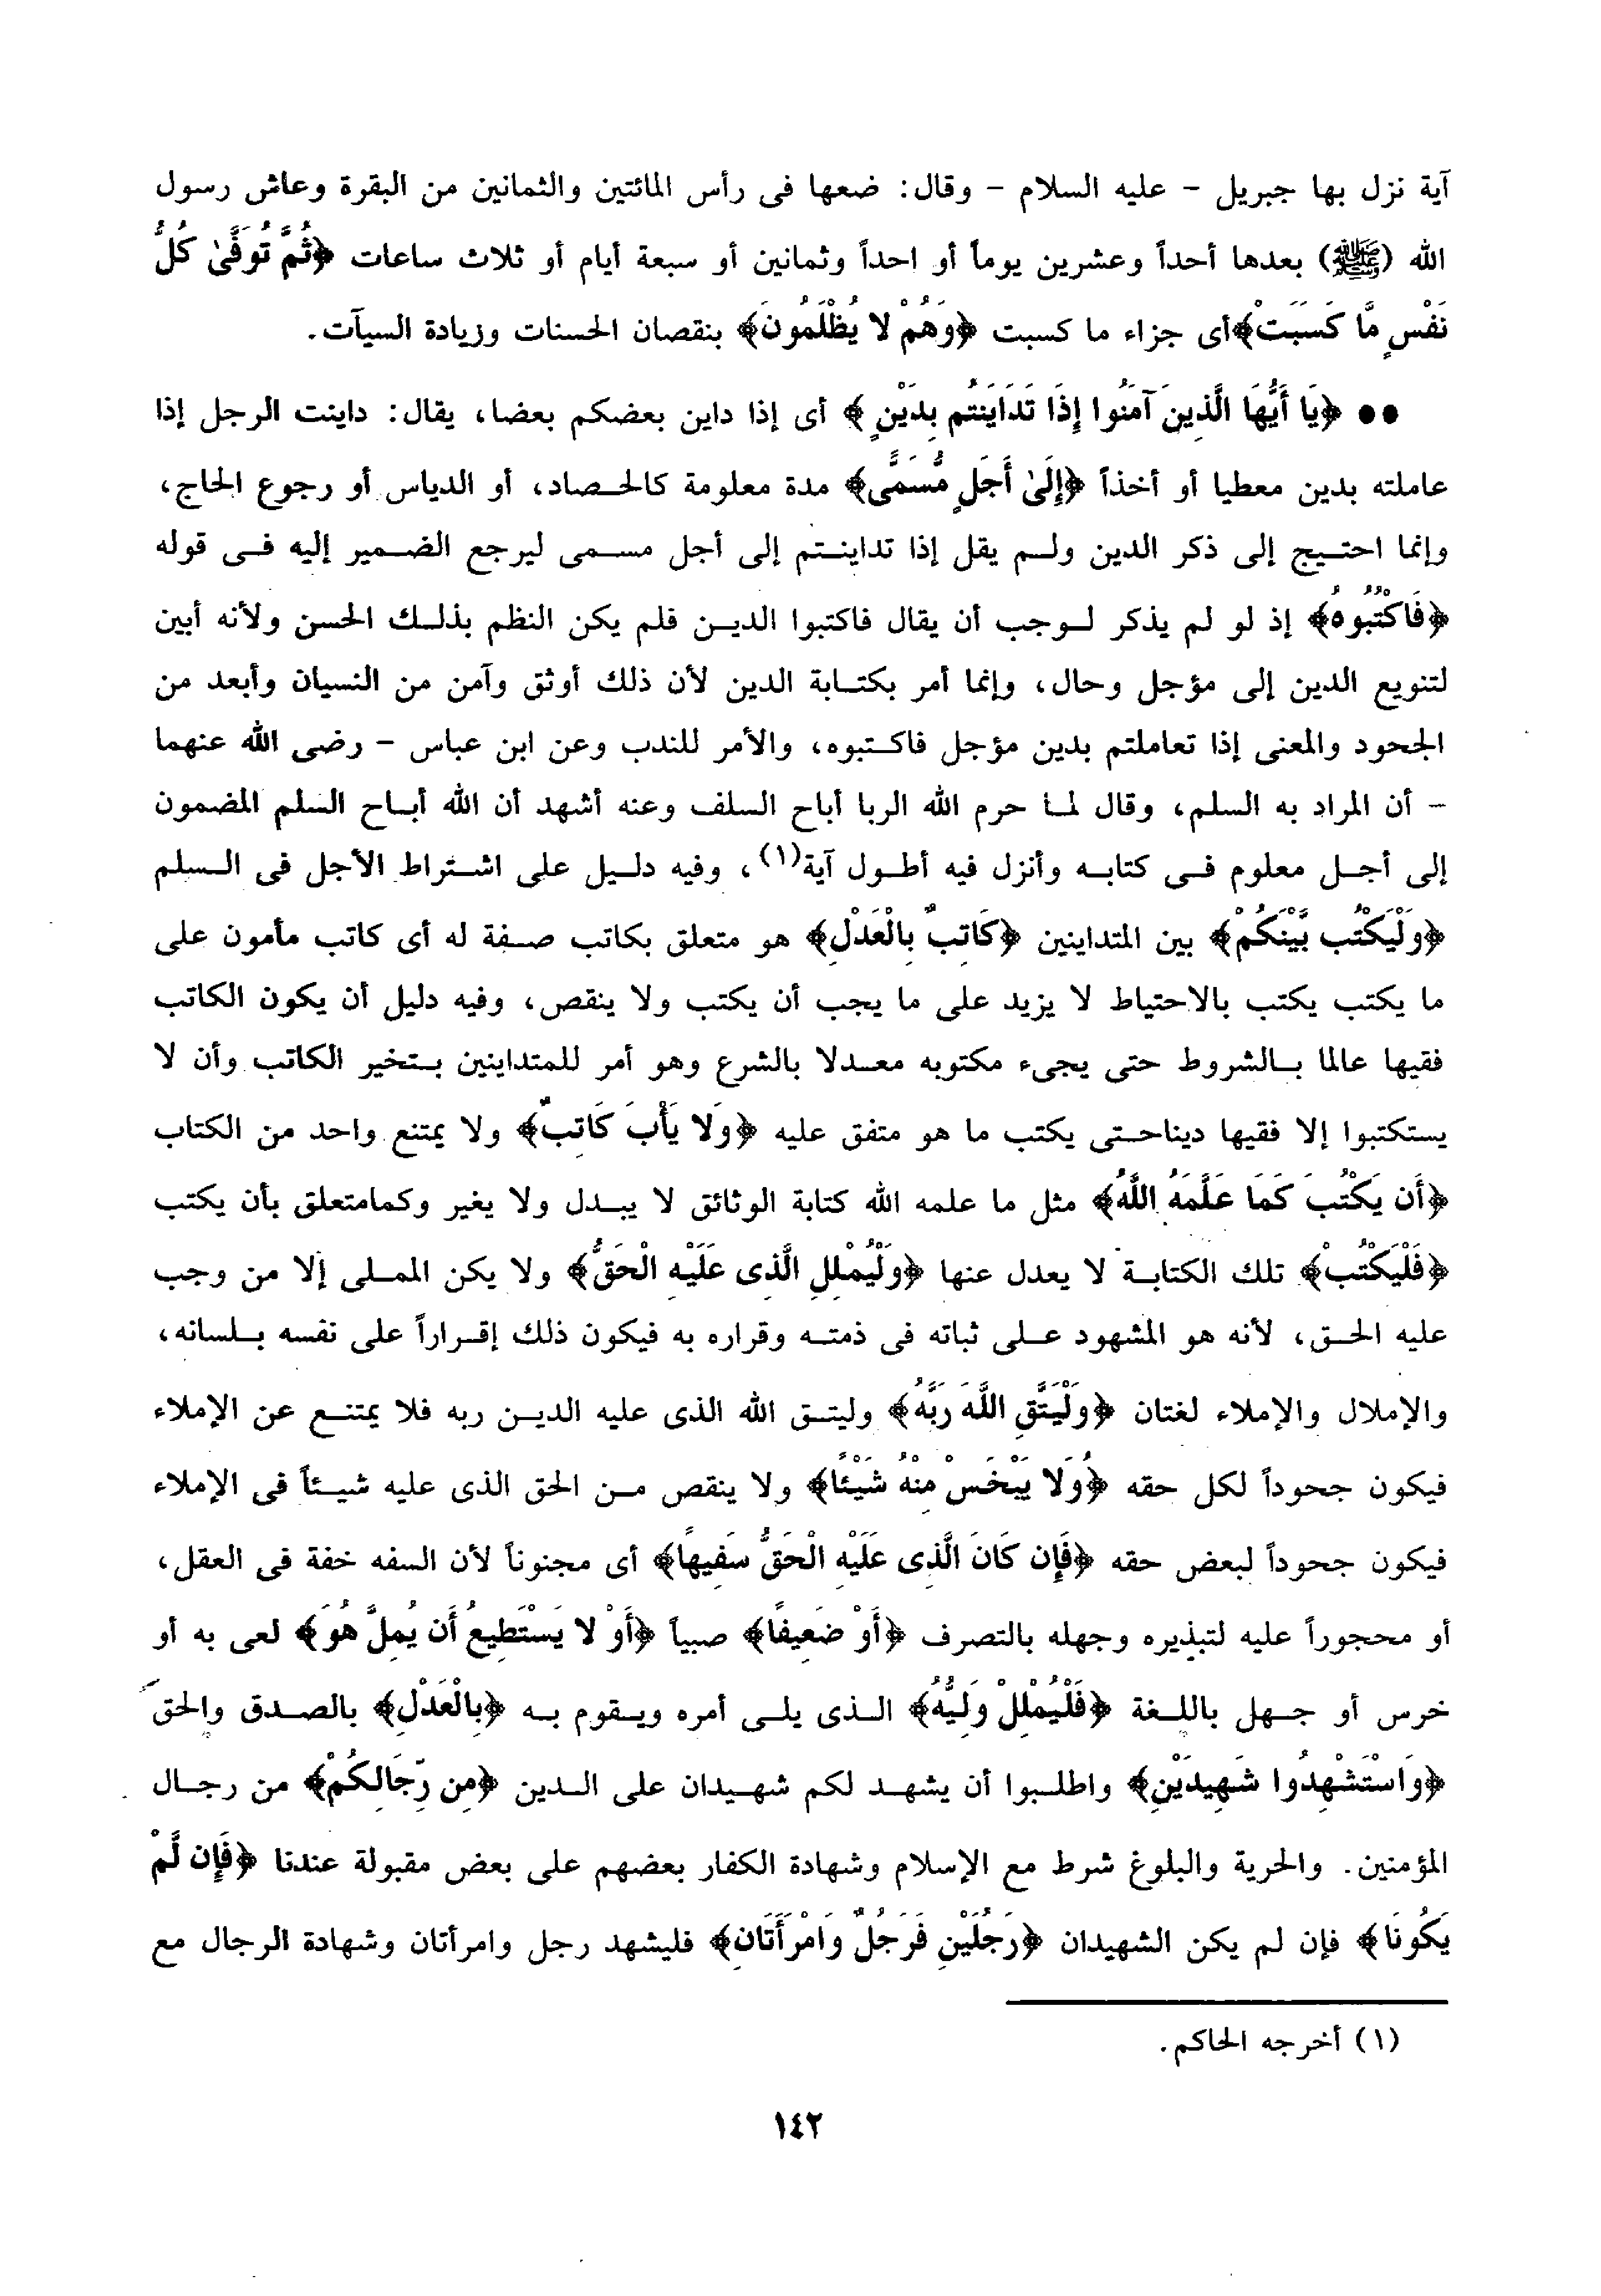 آية نزل بها جبريل - عليه السلام - وقال: ضعها فى رأس المائتين والثمانين من البقرة وعاش رسول
الله (ﷺ) بعدها أحداً وعشرين يوماً أو احداً وثمانين أو سبعة أيام أو ثلاث ساعات ﴿ثُمَّ تُوَفَّىٰ كُلُّ
نَفْسٍ مَّا كَسَبَتْ﴾أى جزاء ما كسبت ﴿وَهُمْ لا يُظْلَمُونَ﴾ بنقصان الحسنات وزيادة السيآت.
●● ﴿يَا أَيُّهَا الَّذِينَ آمَنُوا إِذَا تَدَايَنتُم بِدَيْنٍ﴾ أى إذا داين بعضكم بعضا، يقال: داينت الرجل إذا
عاملته بدين معطيا أو أخذاً ﴿إِلَىٰ أَجَلٍ مُّسَمًّى﴾ مدة معلومة كالحصاد، أو الدياس أو رجوع الحاج،
وإنما احتيج إلى ذكر الدين ولم يقل إذا تداينتم إلى أجل مسمى ليرجع الضمير إليه فى قوله
﴿فَاكْتُبُوهُ﴾ إذ لو لم يذكر لوجب أن يقال فاكتبوا الدين فلم يكن النظم بذلك الحسن ولأنه أبين
لتنويع الدين إلى مؤجل وحال، وإنما أمر بكتابة الدين لأن ذلك أوثق وآمن من النسيان وأبعد من
الجحود والمعنى إذا تعاملتم بدين مؤجل فاكتبوه، والأمر للندب وعن ابن عباس - رضى الله عنهما
- أن المراد به السلم، وقال لما حرم الله الربا أباح السلف وعنه أشهد أن الله أباح السلم المضمون
إلى أجل معلوم فى كتابه وأنزل فيه أطول آية(١)، وفيه دليل على اشتراط الأجل فى السلم
﴿وَلْيَكْتُب بَّيْنَكُمْ﴾ بين المتداينين ﴿كَاتِبٌ بِالْعَدْلِ﴾ هو متعلق بكاتب صفة له أى كاتب مأمون على
ما يكتب يكتب بالاحتياط لا يزيد على ما يجب أن يكتب ولا ينقص، وفيه دليل أن يكون الكاتب
فقيها عالما بالشروط حتى يجىء مكتوبه معدلا بالشرع وهو أمر للمتداينين بتخير الكاتب وأن لا
يستكتبوا إلا فقيها ديناحتى يكتب ما هو متفق عليه ﴿وَلا يَأْبَ كَاتِبٌ﴾ ولا يمتنع واحد من الكتاب
﴿أَن يَكْتُبَ كَمَا عَلَّمَهُ اللَّهُ﴾ مثل ما علمه الله كتابة الوثائق لا يبدل ولا يغير وكمامتعلق بأن يكتب
﴿فَلْيَكْتُبْ﴾ تلك الكتابة لا يعدل عنها ﴿وَلْيُمْلِلِ الَّذِى عَلَيْهِ الْحَقُّ﴾ ولا يكن المملى إلا من وجب
عليه الحق، لأنه هو المشهود على ثباته فى ذمته وقراره به فيكون ذلك إقراراً على نفسه بلسانه،
والإملال والإملاء لغتان ﴿وَلْيَتَّقِ اللَّهَ رَبَّهُ﴾ وليتق الله الذى عليه الدين ربه فلا يمتنع عن الإملاء
فيكون جحوداً لكل حقه ﴿وَلا يَبْخَسْ مِنْهُ شَيْئًا﴾ ولا ينقص من الحق الذى عليه شيئاً فى الإملاء
فيكون جحوداً لبعض حقه ﴿فَإِن كَانَ الَّذِى عَلَيْهِ الْحَقُّ سَفِيهًا﴾ أى مجنوناً لأن السفه خفة فى العقل،
أو محجوراً عليه لتبذيره وجهله بالتصرف ﴿أَوْ ضَعِيفًا﴾ صبياً ﴿أَوْ لا يَسْتَطِيعُ أَن يُمِلَّ هُوَ﴾ لعى به أو
خرس أو جهل باللغة ﴿فَلْيُمْلِلْ وَلِيُّهُ﴾ الذى يلى أمره ويقوم به ﴿بِالْعَدْلِ﴾ بالصدق والحق
﴿وَاسْتَشْهِدُوا شَهِيدَيْنِ﴾ واطلبوا أن يشهد لكم شهيدان على الدين ﴿مِن رِّجَالِكُمْ﴾ من رجال
المؤمنين. والحرية والبلوغ شرط مع الإسلام وشهادة الكفار بعضهم على بعض مقبولة عندنا ﴿فَإِن لَّمْ
يَكُونَا﴾ فإن لم يكن الشهيدان ﴿رَجُلَيْنِ فَرَجُلٌ وَامْرَأَتَانِ﴾ فليشهد رجل وامرأتان وشهادة الرجال مع
(١) أخرجه الحاكم.
١٤٢